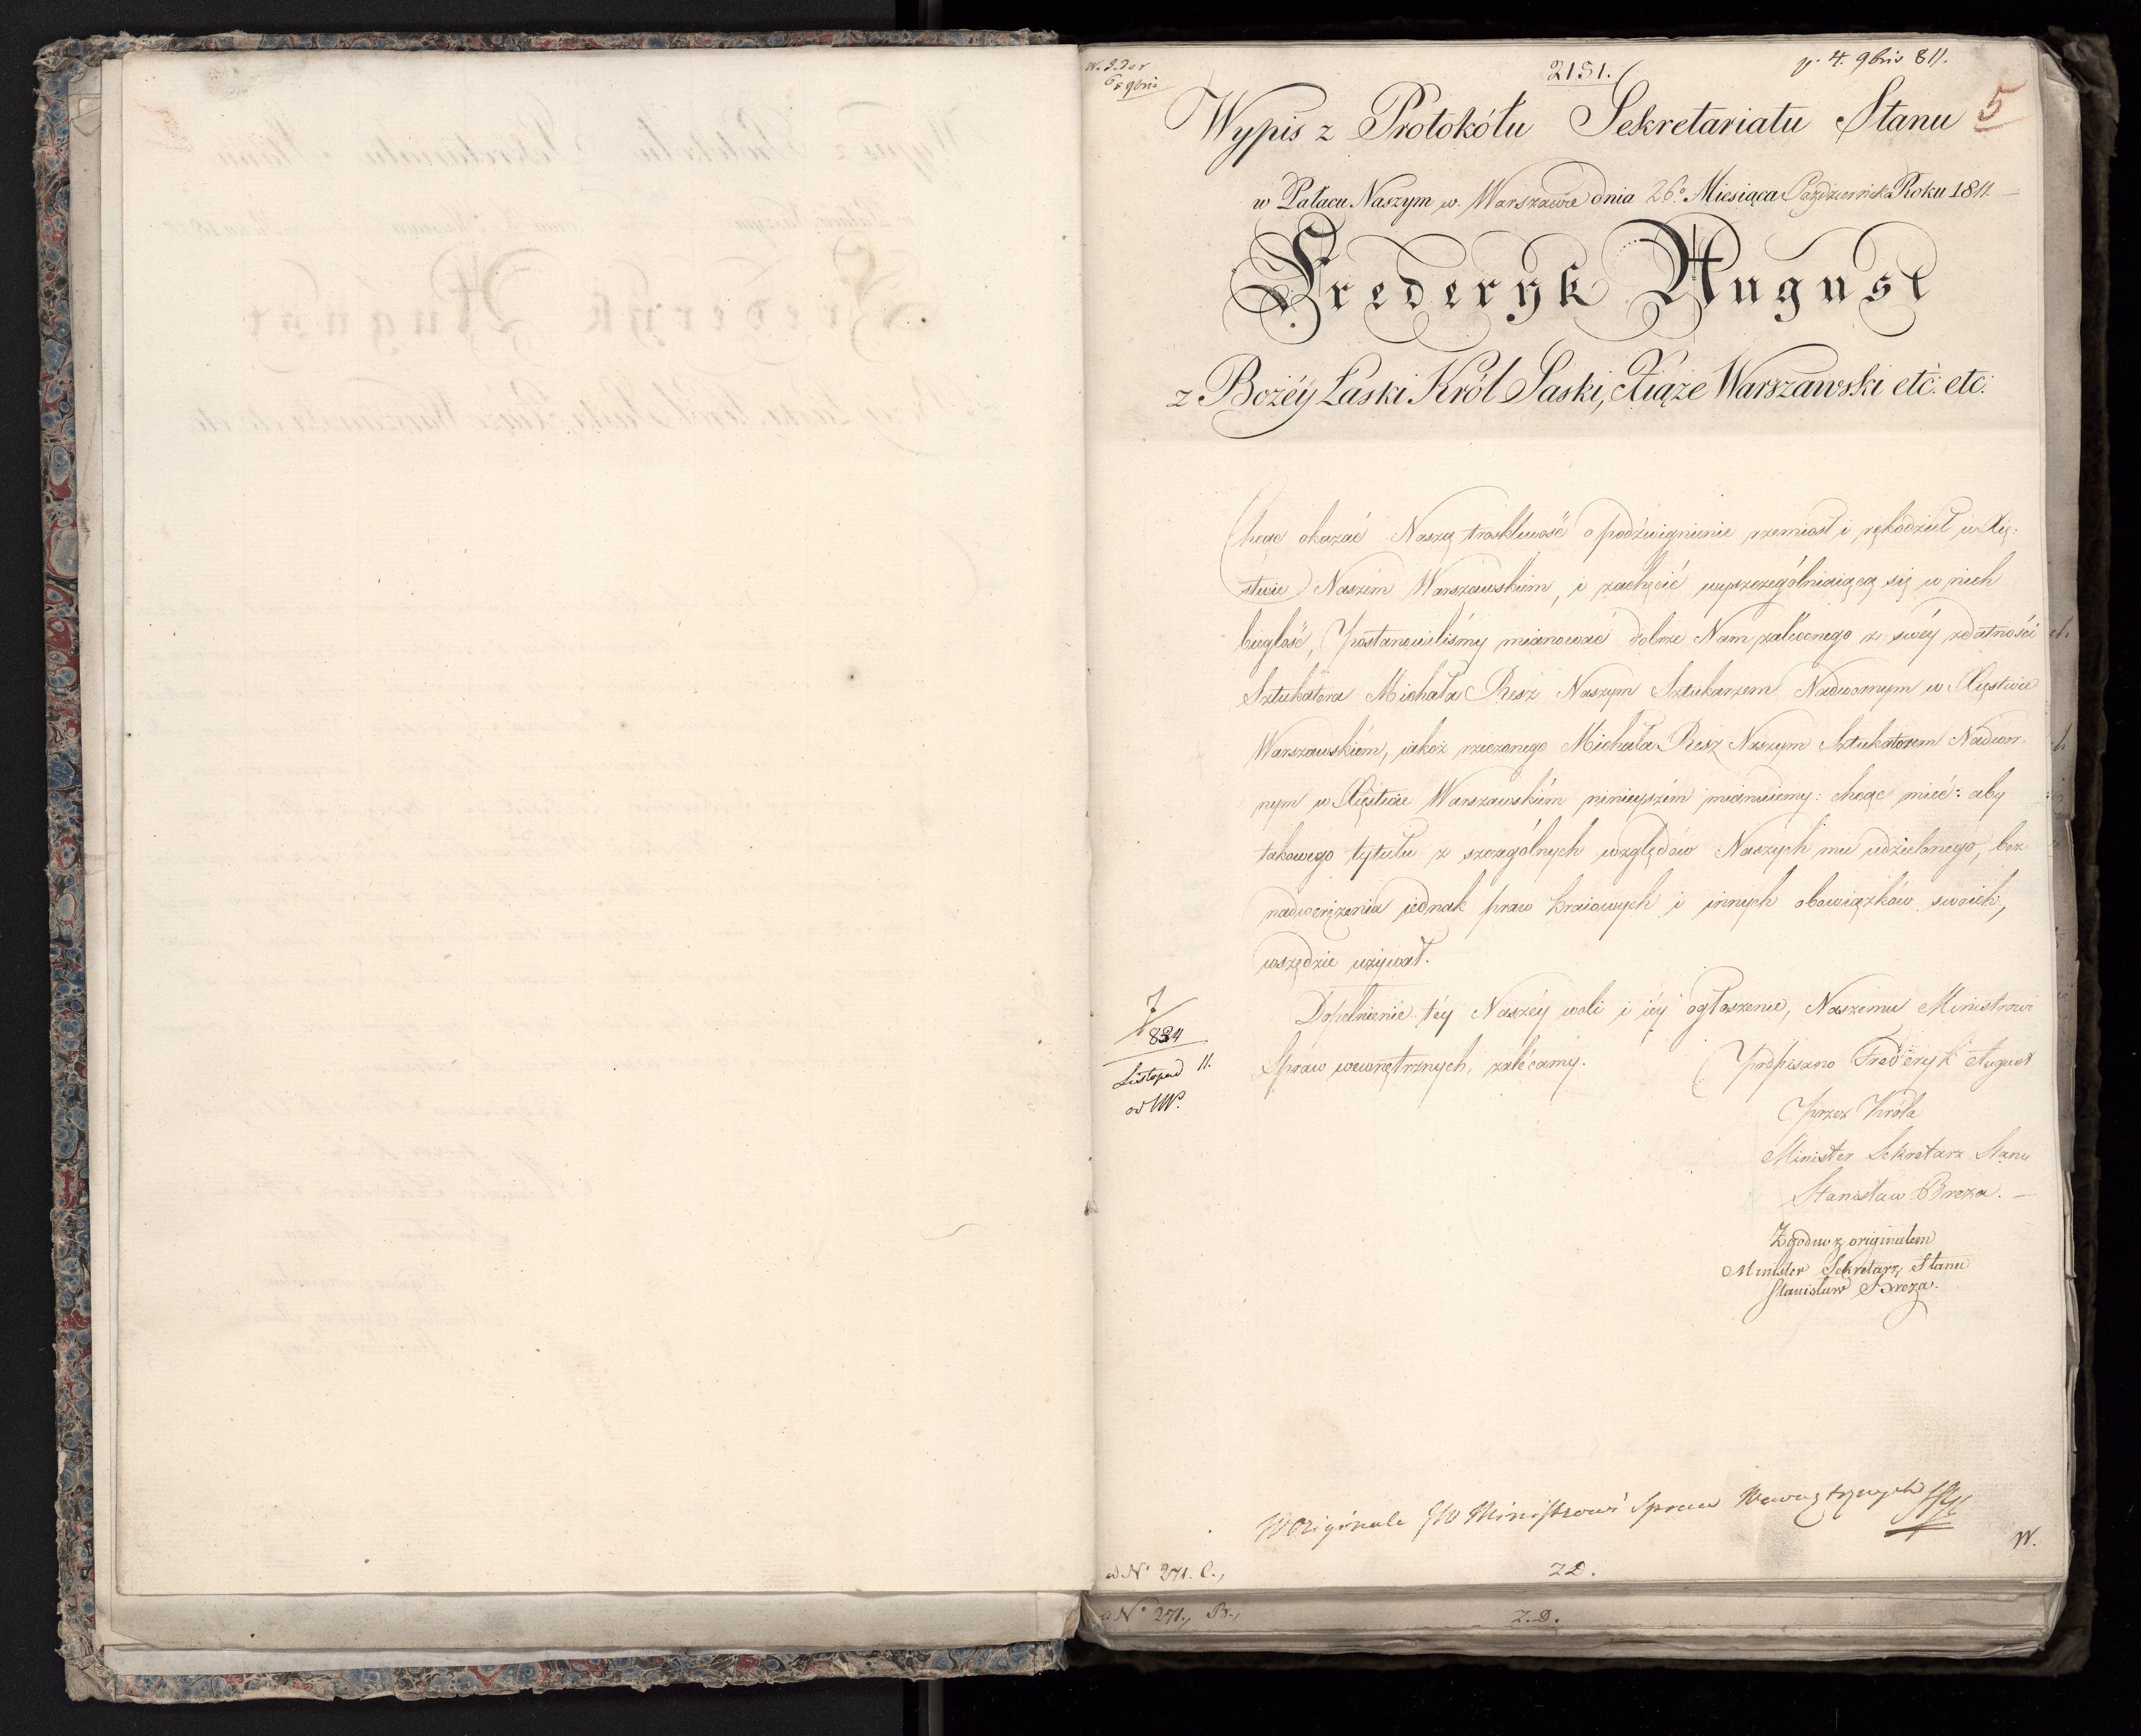 2151.
p. 4. 9bris 811.
5
Wypis z Protokółu Sekretariatu Stanu
w Pałacu Naszym w. Warszawie dnia 26.° Miesiąca Października Roku 1811.
Frederyk August
z Bożéy Łaski Król Saski, Xiąże Warszawski etc: etc:
Chcąc okazać Naszą troskliwość o podźwignienie rzemiosł i rękodzieł w Xię-
stwie Naszém Warszawskiém, i zachęcić wyszczególniaiącą się w nich
biegłość, Postanowiliśmy mianować dobrze Nam zaleconego z swéy zdatności
Sztukatora Michała Resz Naszym Sztukarzem Nadwornym w Xięstwie
Warszawskiém, iakoż rzeczonego Michała Resz Naszym Sztukatorem Nadwor-
nym w Xięstwie Warszawskiém ninieyszém mianuiemy: chcąc mieć: aby
takowego tytułu z szczególnych względów Naszych mu udzielonego, bez
nadwerężenia iednak praw kraiowych i innych obowiązków swoich,
wszędzie używał.
Dopełnienie téy Naszéy woli i iéy ogłoszenie, Naszemu Ministrowi
Spraw wewnętrznych, zalécamy.
Podpisano Frederyk August
Przez Króla
Minister Sekretarz Stanu
Stanisław Breza. —
7
834
Listopad 11.
od W.
Zgodno z originałem
Minister Sekretarz Stanu
Stanisław Breza.
W Originale JW Ministrowi Spraw Wewnętrznych
W.
ad N° 271. C.,
Z D.
a N° 271., B.,
Z. D.